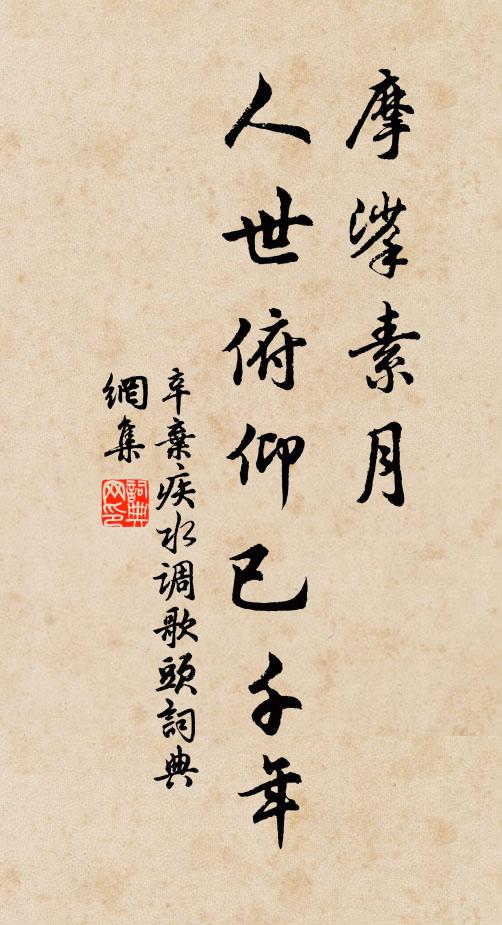 摩挲素月
人世俯仰已千年
辛棄疾水调歌頭詞典
網集
詞典
网印